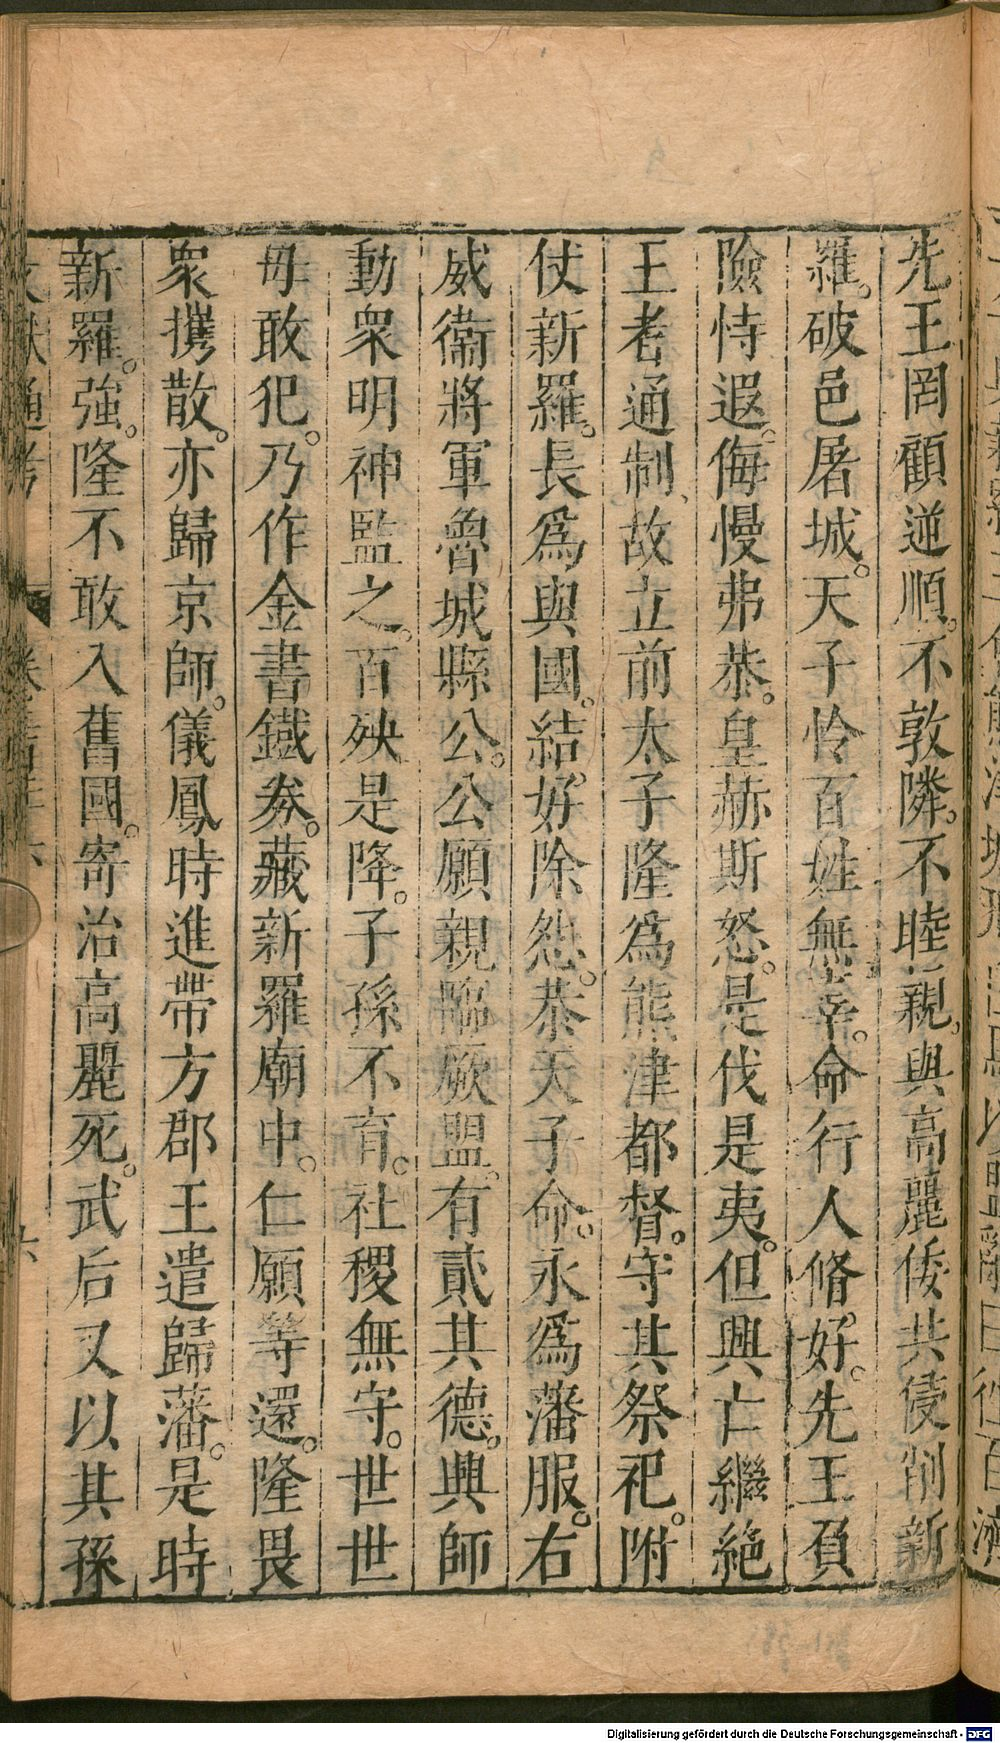 先王罔顧逆順。不敦隣。不睦親。與高麗倭共侵削新
羅。破邑屠城。天子怜百姓無辜。命行人脩好。先王負
險恃遐。侮慢弗恭。皇赫斯怒。是伐是夷。但興亡繼絕
王者通制、故立前太子隆爲熊津都督。守其祭祀。附
仗新羅。長爲與國。結好除怨。恭天子命。永爲藩服。右
威衞將軍魯城縣公。公願親臨厥盟。有貳其德。興師
動衆明神監之。百殃是降。子孫不育。社稷無守。世世
毋敢犯。乃作金書鐵券。藏新羅廟中。仁願等還。隆畏
衆攜散。亦歸京師。儀鳳時進帶方郡王遣歸藩。是時
新羅。強。隆不敢入舊國。寄治高麗死。武后又以其孫
文獻通考
六
Digitalisierung gefördert durch die Deutsche Forschungsgemeinschaft - DFG